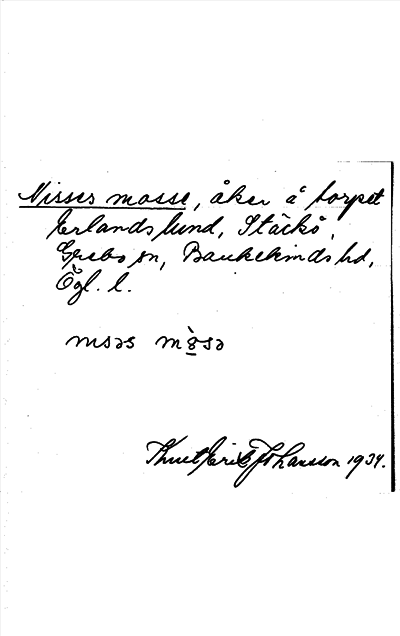 Nisses mosse, åker å torpet
Erlandslund, Stäckö,
Grebo sn, Bankekinds hd,
Ögl. l.
nisəs mòsə
Knut Erik Johansson 1934.